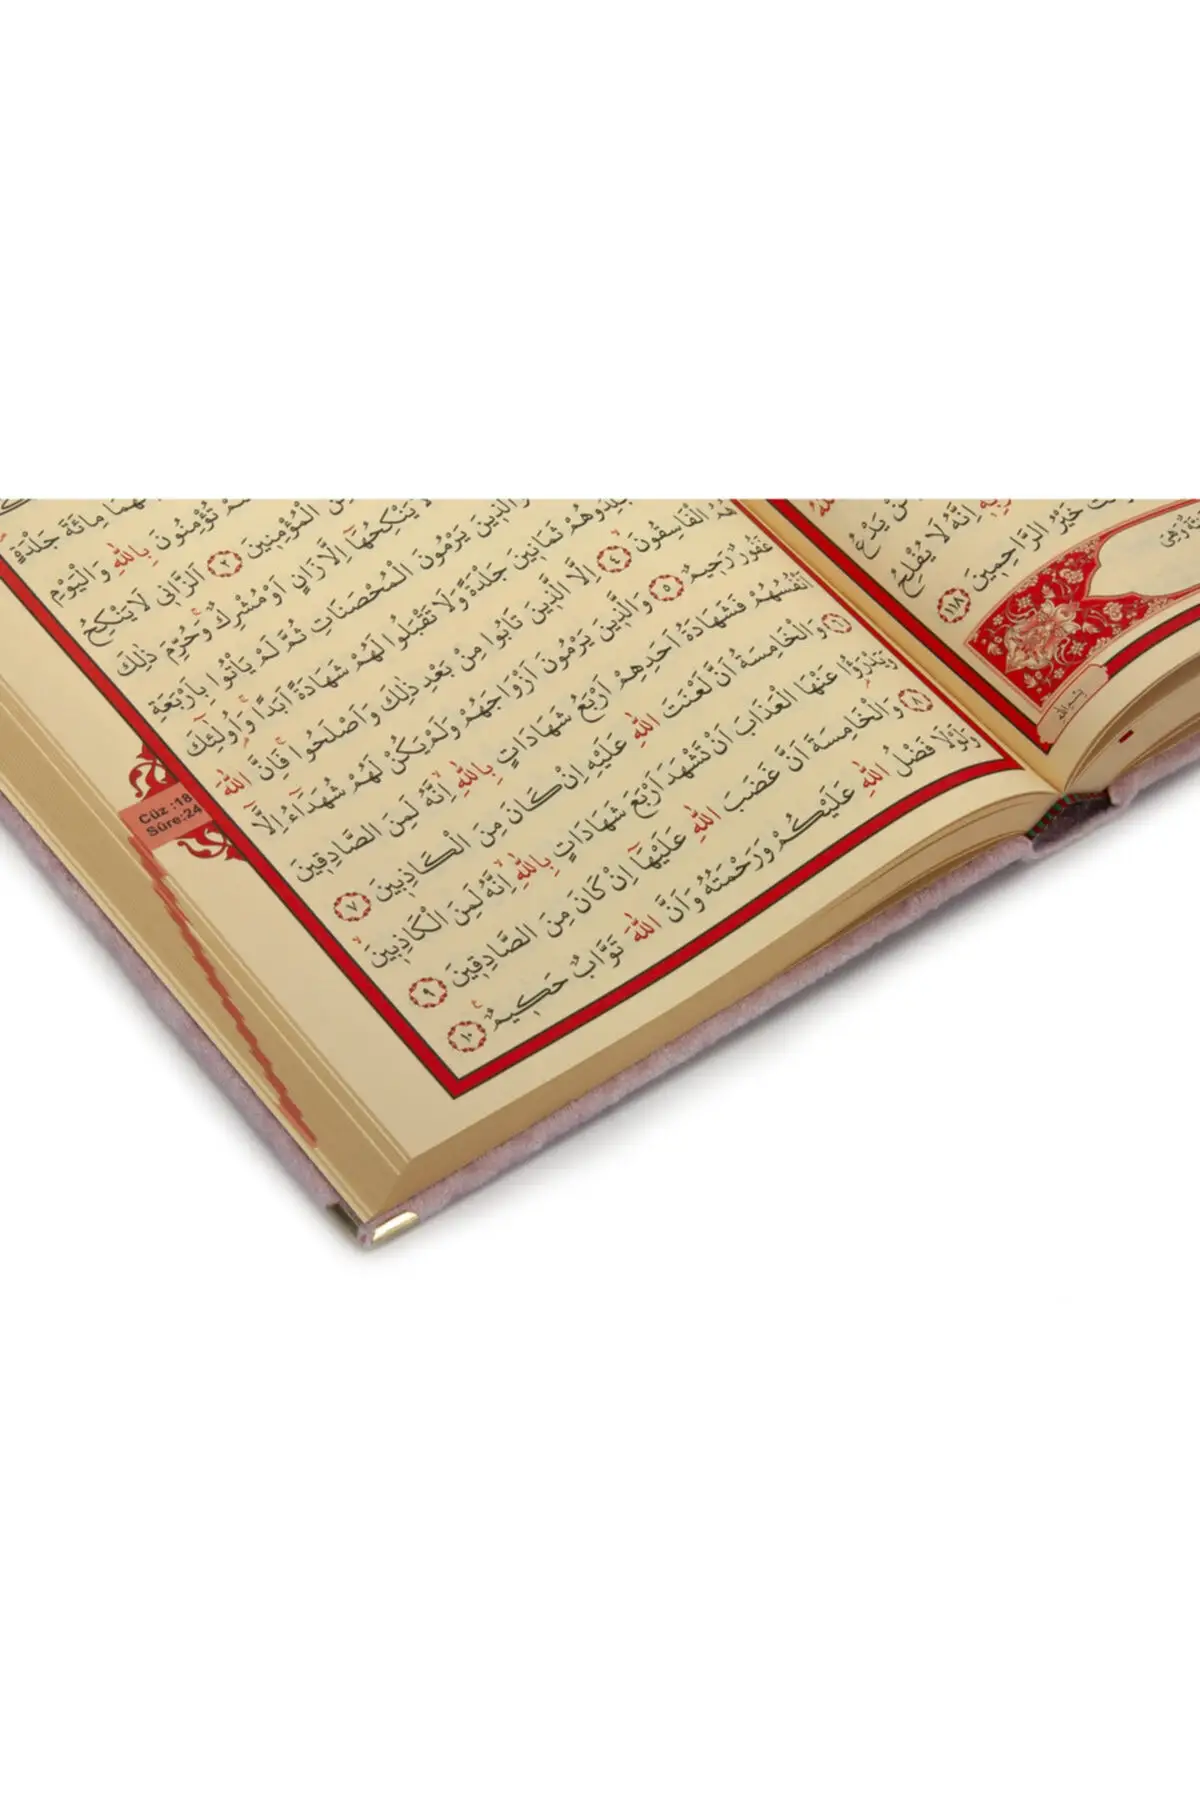 مَنْ يَدْعُ
اِنَّهُ لَا يُفْلِحُ
خَيْرُ الرَّاحِمِينَ ﴿١١٨﴾
بِسْمِ اللّٰهِ
مِائَةَ جَلْدَةٍ
تُؤْمِنُونَ بِاللّٰهِ وَالْيَوْمِ
الْمُؤْمِنِينَ ﴿٢﴾ اَلزَّانِي لَا يَنْكِحُ
لَا يَنْكِحُهَٓا اِلَّا زَانٍ اَوْ مُشْرِكٌۚ وَحُرِّمَ ذٰلِكَ
وَالَّذِينَ يَرْمُونَ الْمُحْصَنَاتِ ثُمَّ لَمْ يَأْتُوا بِاَرْبَعَةِ
ثَمَانِينَ جَلْدَةً وَلَا تَقْبَلُوا لَهُمْ شَهَادَةً اَبَدًاۚ وَاُو۬لٰٓئِكَ
هُمُ الْفَاسِقُونَۙ ﴿٤﴾ اِلَّا الَّذِينَ تَابُوا مِنْ بَعْدِ ذٰلِكَ وَاَصْلَحُواۚ فَاِنَّ اللّٰهَ
غَفُورٌ رَحِيمٌ ﴿٥﴾ وَالَّذِينَ يَرْمُونَ اَزْوَاجَهُمْ وَلَمْ يَكُنْ لَهُمْ شُهَدَٓاءُ اِلَّٓا
اَنْفُسُهُمْ فَشَهَادَةُ اَحَدِهِمْ اَرْبَعُ شَهَادَاتٍ بِاللّٰهِۙ اِنَّهُ لَمِنَ الصَّادِقِينَ
﴿٦﴾ وَالْخَامِسَةُ اَنَّ لَعْنَتَ اللّٰهِ عَلَيْهِ اِنْ كَانَ مِنَ الْكَاذِبِينَ ﴿٧﴾
وَيَدْرَؤُ۬ا عَنْهَا الْعَذَابَ اَنْ تَشْهَدَ اَرْبَعَ شَهَادَاتٍ بِاللّٰهِۙ اِنَّهُ لَمِنَ الْكَاذِبِينَۙ
﴿٨﴾ وَالْخَامِسَةَ اَنَّ غَضَبَ اللّٰهِ عَلَيْهَٓا اِنْ كَانَ مِنَ الصَّادِقِينَ ﴿٩﴾
وَلَوْلَا فَضْلُ اللّٰهِ عَلَيْكُمْ وَرَحْمَتُهُ وَاَنَّ اللّٰهَ تَوَّابٌ حَكِيمٌ۟ ﴿١٠﴾
Cüz :18
Sûre:24